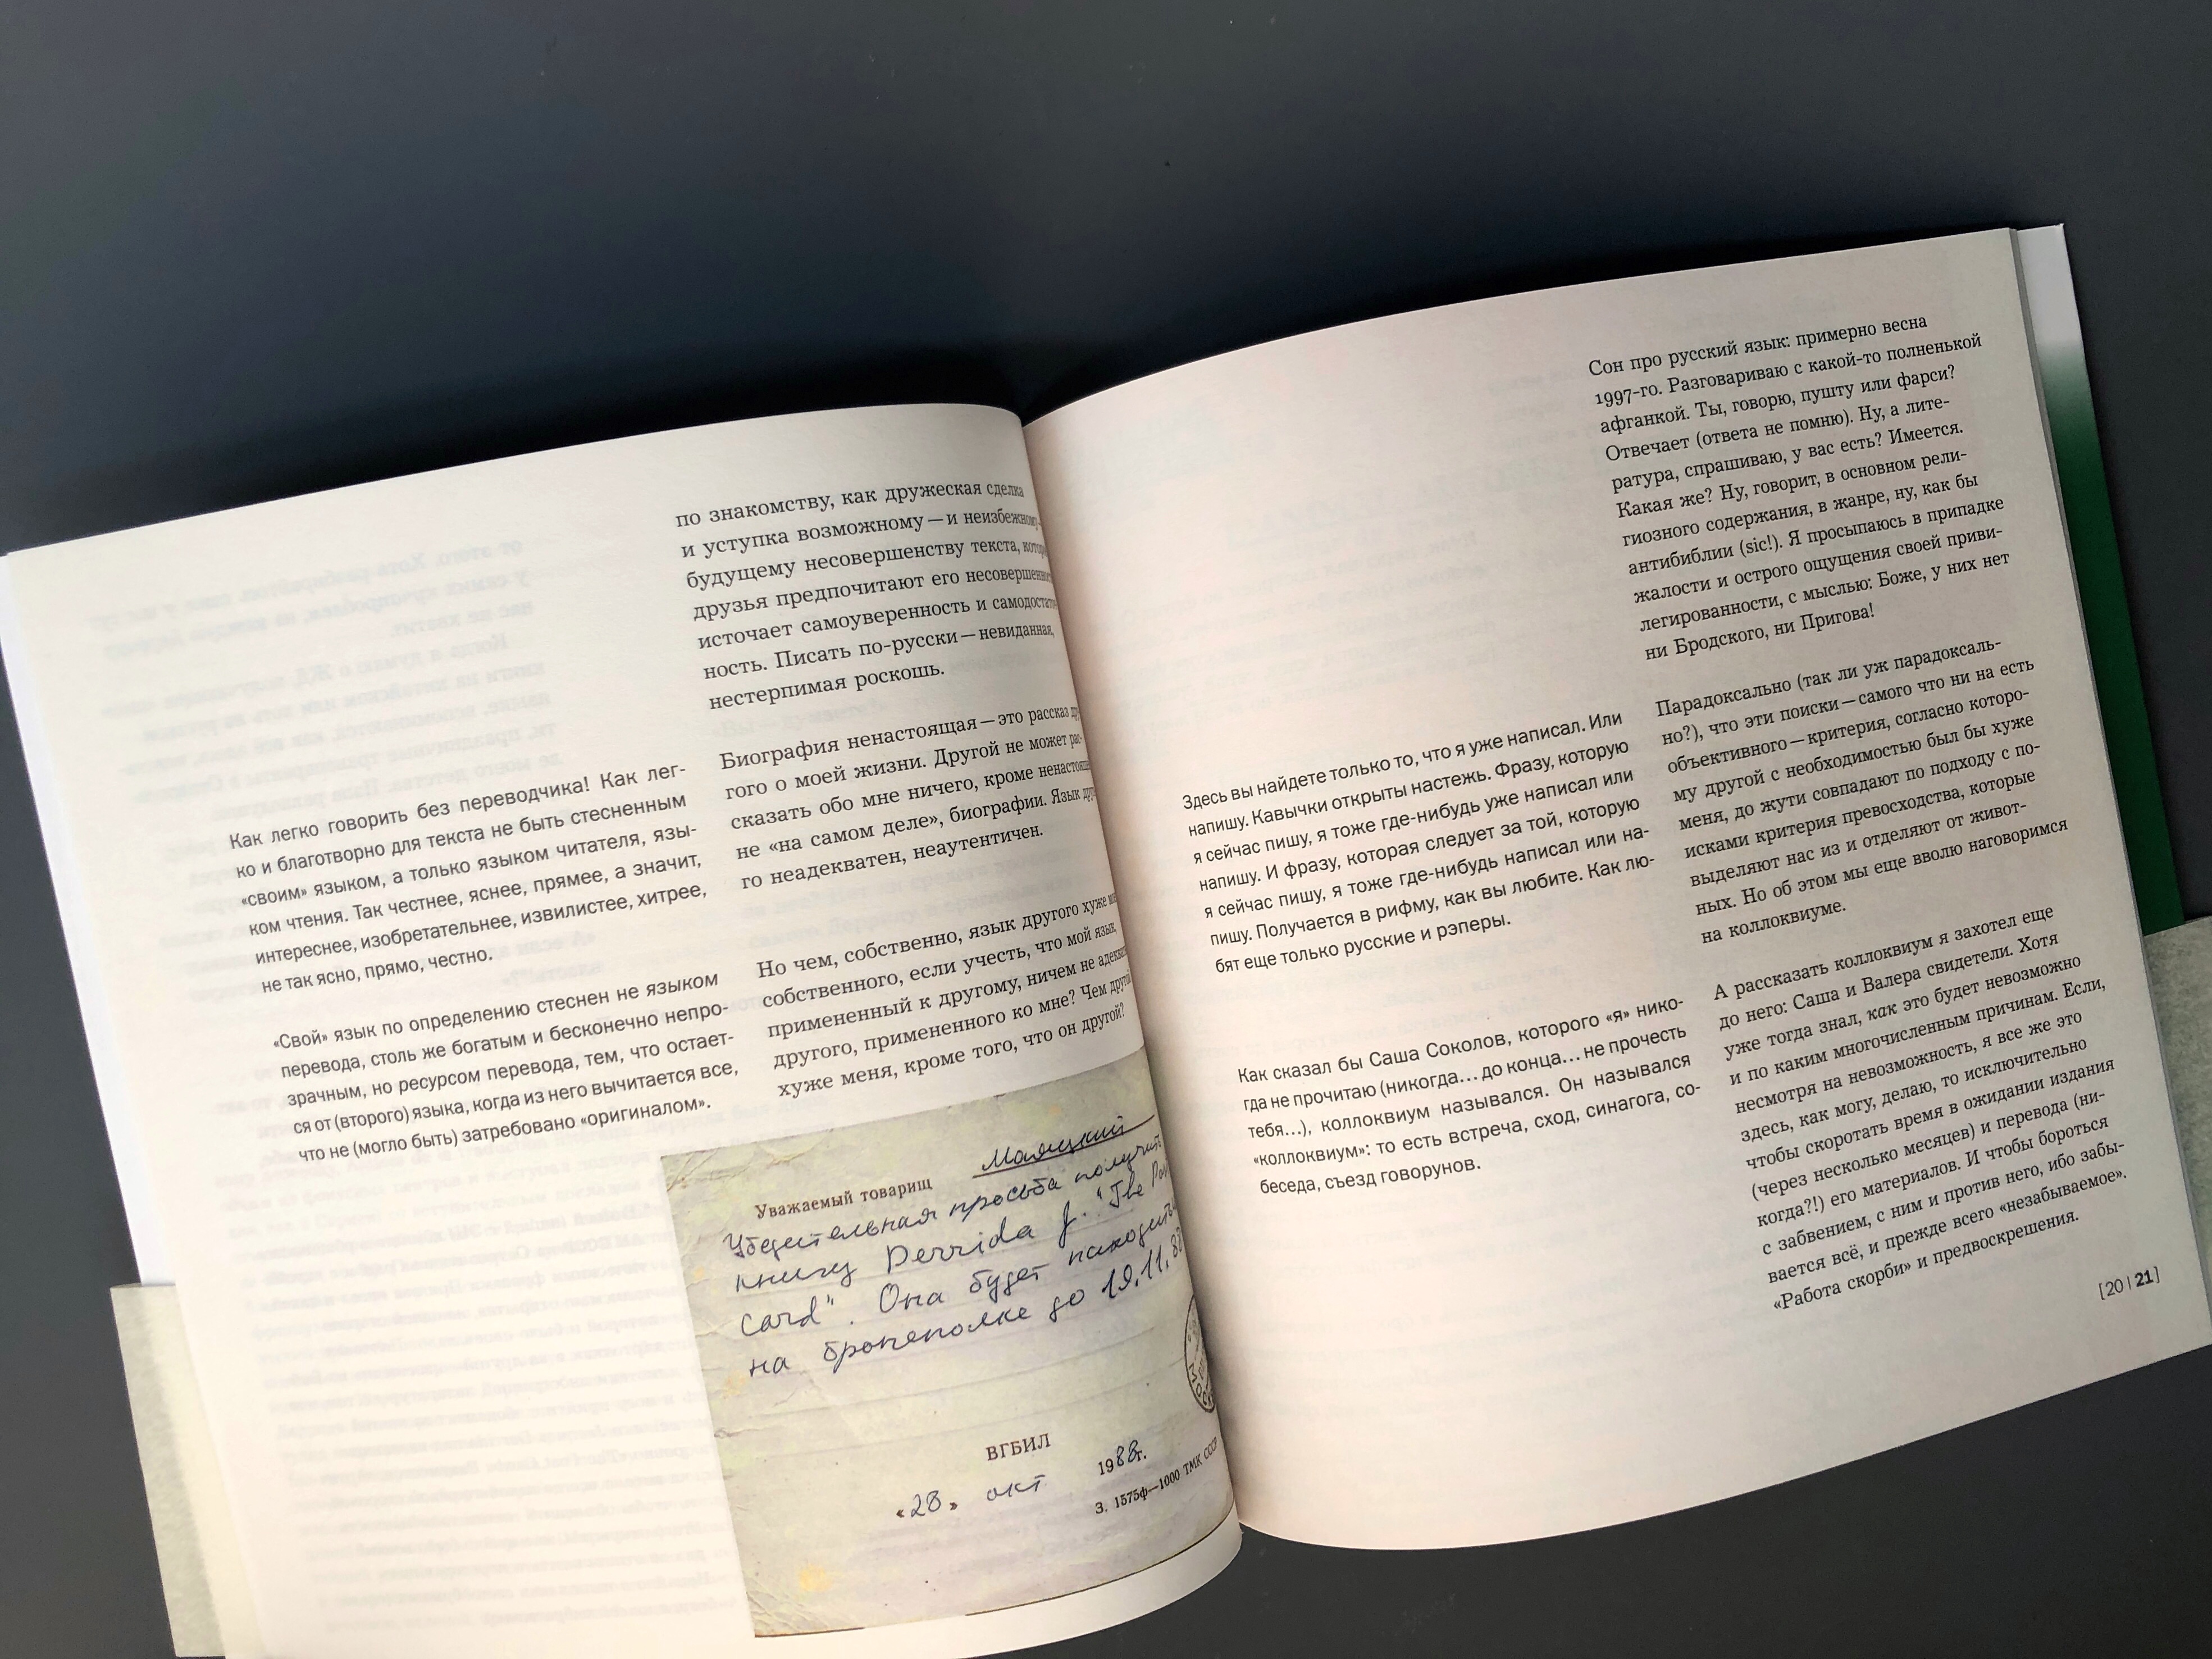 по знакомству, как дружеская сделка
и уступка возможному — и неизбежному —
будущему несовершенству текста,
друзья предпочитают его
источает самоуверенность и
ность. Писать по-русски — невиданная,
нестерпимая роскошь.
Биография ненастоящая — это рассказ
гого о моей жизни. Другой не может рас-
сказать обо мне ничего, кроме
не «на самом деле», биографии. Язык
го неадекватен, неаутентичен.
Но чем, собственно, язык другого хуже
собственного, если учесть, что мой язык,
примененный к другому, ничем не
другого, примененного ко мне? Чем другой
хуже меня, кроме того, что он другой?
Как легко говорить без переводчика! Как лег-
ко и благотворно для текста не быть стесненным
«своим» языком, а только языком читателя, язы-
ком чтения. Так честнее, яснее, прямее, а значит,
интереснее, изобретательнее, извилистее, хитрее,
не так ясно, прямо, честно.
«Свой» язык по определению стеснен не языком
перевода, столь же богатым и бесконечно непро-
зрачным, но ресурсом перевода, тем, что остает-
ся от (второго) языка, когда из него вычитается все,
что не (могло быть) затребовано «оригиналом».
Маяцкий
Уважаемый товарищ
Убедительная просьба получить
книгу Derrida J. "The
card". Она будет находиться
на бронеполке до 19.11.88
ВГБИЛ
«28» окт 1988г.
З. 1575ф—1000 ТМК СССР
Сон про русский язык: примерно весна
1997-го. Разговариваю с какой-то полненькой
афганкой. Ты, говорю, пушту или фарси?
Отвечает (ответа не помню). Ну, а лите-
ратура, спрашиваю, у вас есть? Имеется.
Какая же? Ну, говорит, в основном рели-
гиозного содержания, в жанре, ну, как бы
антибиблии (sic!). Я просыпаюсь в припадке
жалости и острого ощущения своей приви-
легированности, с мыслью: Боже, у них нет
ни Бродского, ни Пригова!
Парадоксально (так ли уж парадоксаль-
но?), что эти поиски — самого что ни на есть
объективного — критерия, согласно которо-
му другой с необходимостью был бы хуже
меня, до жути совпадают по подходу с по-
исками критерия превосходства, которые
выделяют нас из и отделяют от живот-
ных. Но об этом мы еще вволю наговоримся
на коллоквиуме.
А рассказать коллоквиум я захотел еще
до него: Саша и Валера свидетели. Хотя
уже тогда знал, как это будет невозможно
и по каким многочисленным причинам. Если,
несмотря на невозможность, я все же это
здесь, как могу, делаю, то исключительно
чтобы скоротать время в ожидании издания
(через несколько месяцев) и перевода (ни-
когда?!) его материалов. И чтобы бороться
с забвением, с ним и против него, ибо забы-
вается всё, и прежде всего «незабываемое».
«Работа скорби» и предвоскрешения.
Здесь вы найдете только то, что я уже написал. Или
напишу. Кавычки открыты настежь. Фразу, которую
я сейчас пишу, я тоже где-нибудь уже написал или
напишу. И фразу, которая следует за той, которую
я сейчас пишу, я тоже где-нибудь написал или на-
пишу. Получается в рифму, как вы любите. Как лю-
бят еще только русские и рэперы.
Как сказал бы Саша Соколов, которого «я» нико-
гда не прочитаю (никогда… до конца… не прочесть
тебя…), коллоквиум назывался. Он назывался
«коллоквиум»: то есть встреча, сход, синагога, со-
беседа, съезд говорунов.
[20 | 21]